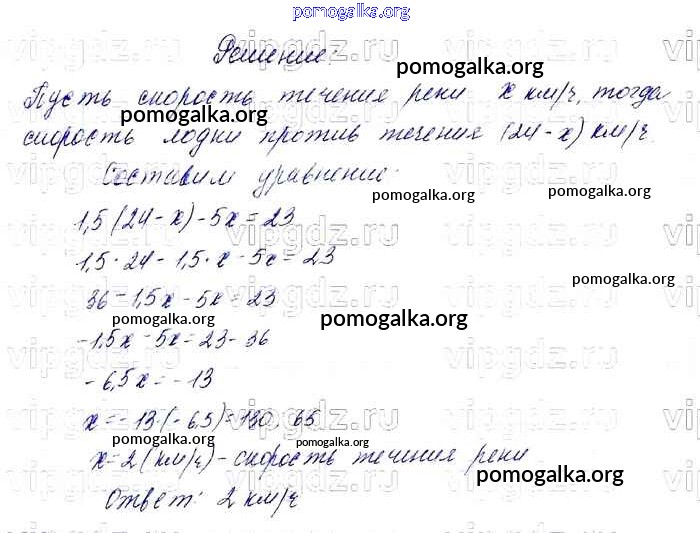 pomogalka.org
Решение.
pomogalka.org
Пусть скорость течения реки x км/ч, тогда
pomogalka.org
скорость лодки против течения (24 - x) км/ч.
Составим уравнение:
pomogalka.org
pomogalka.org
1,5 (24 - x) - 5x = 23
1,5 · 24 - 1,5 · x - 5x = 23
pomogalka.org
36 - 1,5x - 5x = 23
pomogalka.org
pomogalka.org
-1,5x - 5x = 23 - 36
-6,5x = -13
x = -13 : (-6,5) = 130 : 65
pomogalka.org
pomogalka.org
x = 2 (км/ч) - скорость течения реки
pomogalka.org
Ответ: 2 км/ч
vipgdz.ru